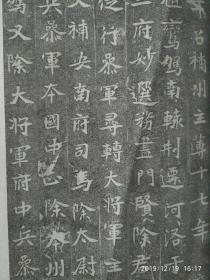 召補州主薄十七年
鸞駕南轅制遷河洛于
二府妙選務盡門賢除君
行參軍尋轉大將軍主
又補安南府司馬除太尉
兵參軍本國中正除本州
又除大將軍府中兵參
2019/12/19 16:17